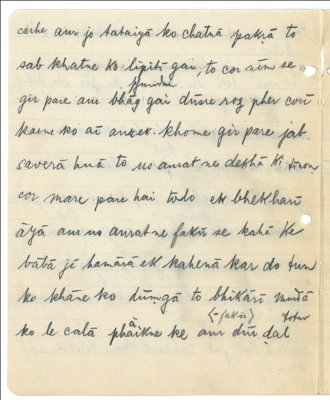 carhe aur jo tataiyā ko chatnā pakṛā to
sab khatne ko lipiti gai, to cor nīm se
gir pare aur bhāg gai dūsre roz pher corī
karne ko āī aur ek khome gir pare jab
saverā huā to us aurat ne dekhā ki tinon
cor mare pare hai to do ek bhikhārī
āyā aur us aurat ne fakīr se kahā ke
bābā jī hamārā ek kahenā kar do tum
ko khāne ko dūṃgā to bhikārī murdā
(=fakir)
ko le calā phāikne ke aur dūr ḍal